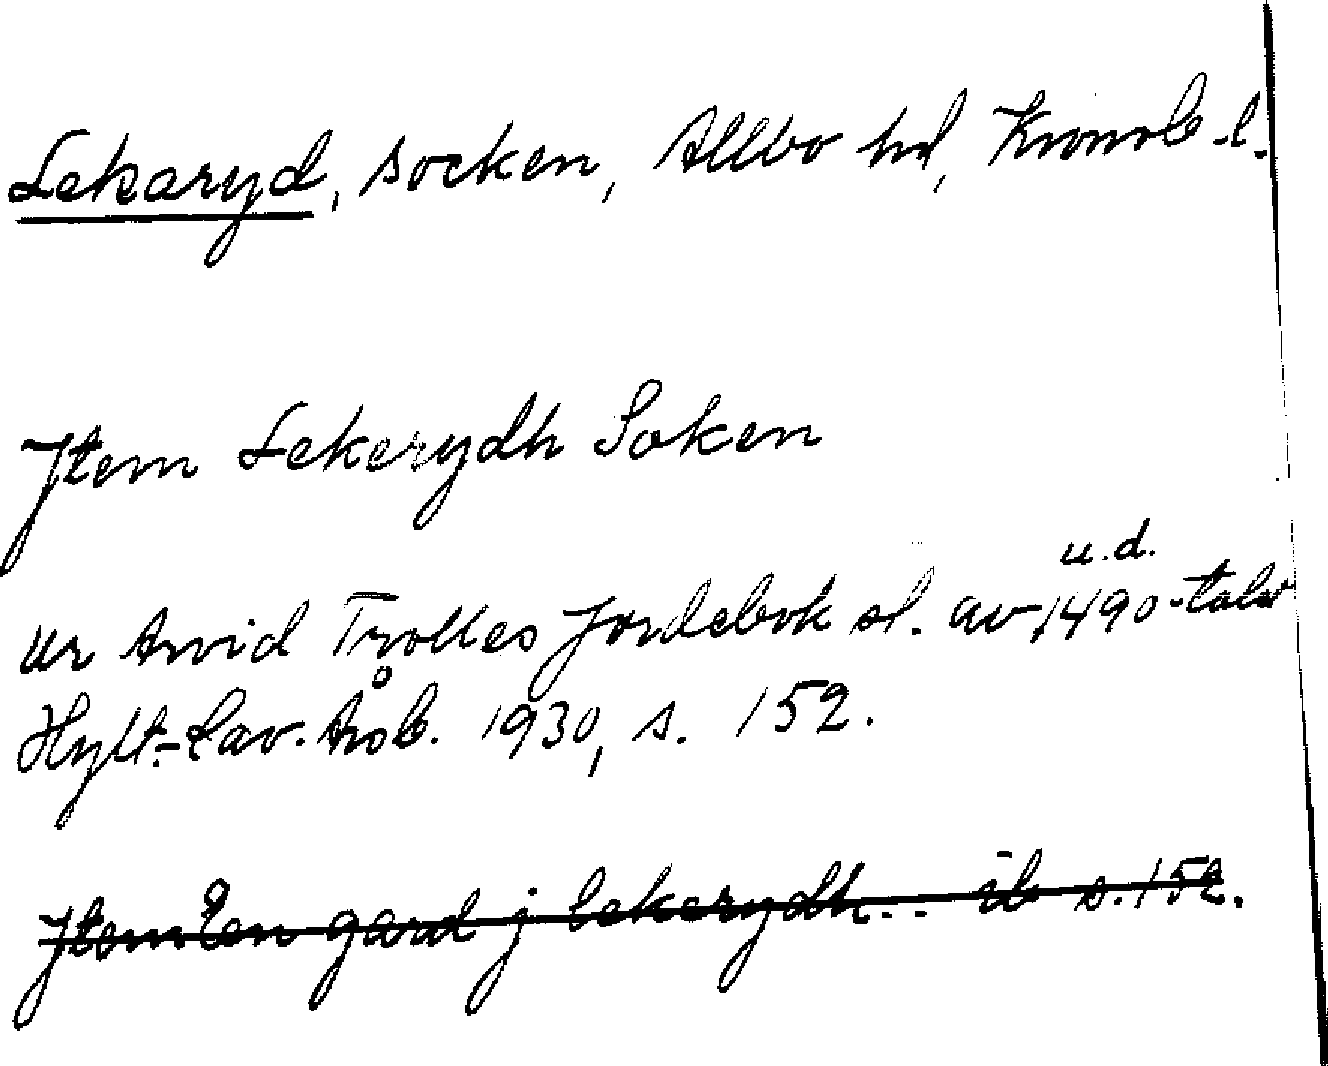 Lekaryd, socken, Allbo hd, Kronob. l.
Jtem Lekerydh Soken
u.d.
Ur Arvid Trolles Jordebok sl. av 1490-talet
Hylt.-Cav. Årsb. 1930, s. 152.
Jtem Een gard j lekerydh... ib s. 152.